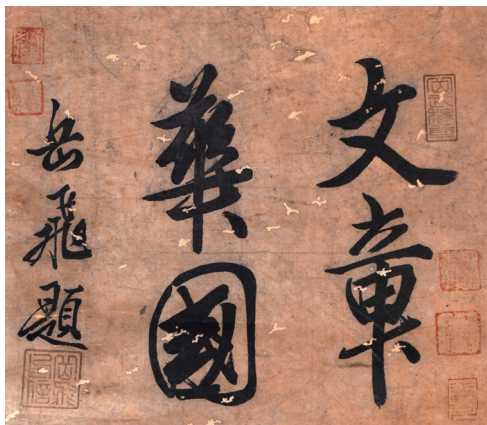 文章
華國
岳飛題